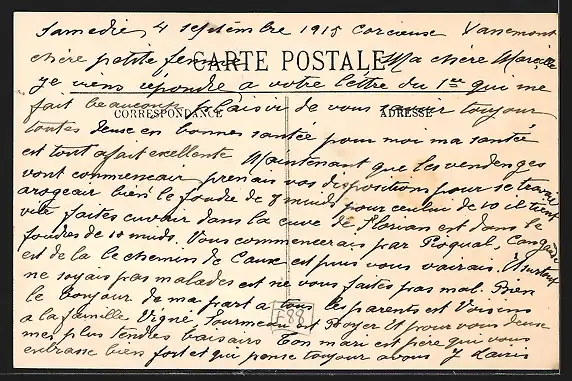 Samedie, 4 septembre 1915 Corcieuse Vanemont
chère petite femme Ma chère Marcelle
CARTE POSTALE
je viens répondre a votre lettre du 1er qui me
fait beaucoup plaisir de vous savoir toujour
CORRESPONDANCE ADRESSE
toutes deuse en bonnes santée pour moi ma santée
est tout afait exellente Maintenant que les vendenges
vont commencair prenais vos dispositions pour se travail
arogeair bien le foudre de 8 muids pour celui de 10 il tient
vite faites cuvair dans la cuve de Florian est dans le
foudres de 10 muids. Vous commencerais par Roqual, Cangarde
est de la le chemin de Caux est puis vous vairais. Surtout
ne soyais pas malades est ne vous faites pas mal. Bien
le bonjour de ma part a tous les parents est Voisins
a la famille Vigné Fourmeau est Boyer Et pour vous deuse
mes plus tendres baisairs Ton mari est père qui vous
enbrasse bien fort et qui pense toujour a vous J Lauris
E88